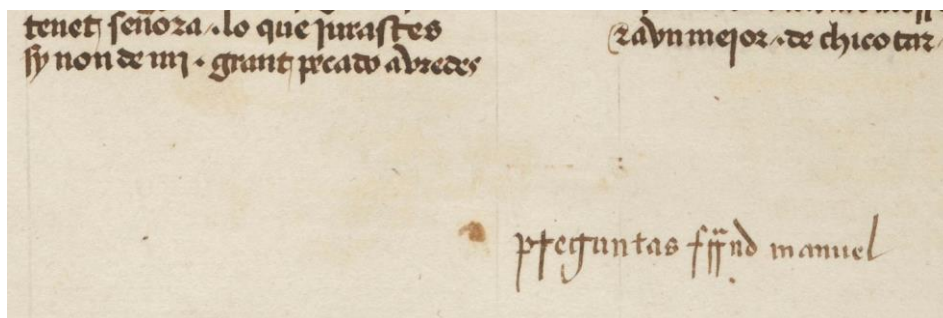 tenet señora . lo que jurastes
sy non de mj . grant pecado avredes
r avn mejor . de chico tar
preguntas ffrnd manuel